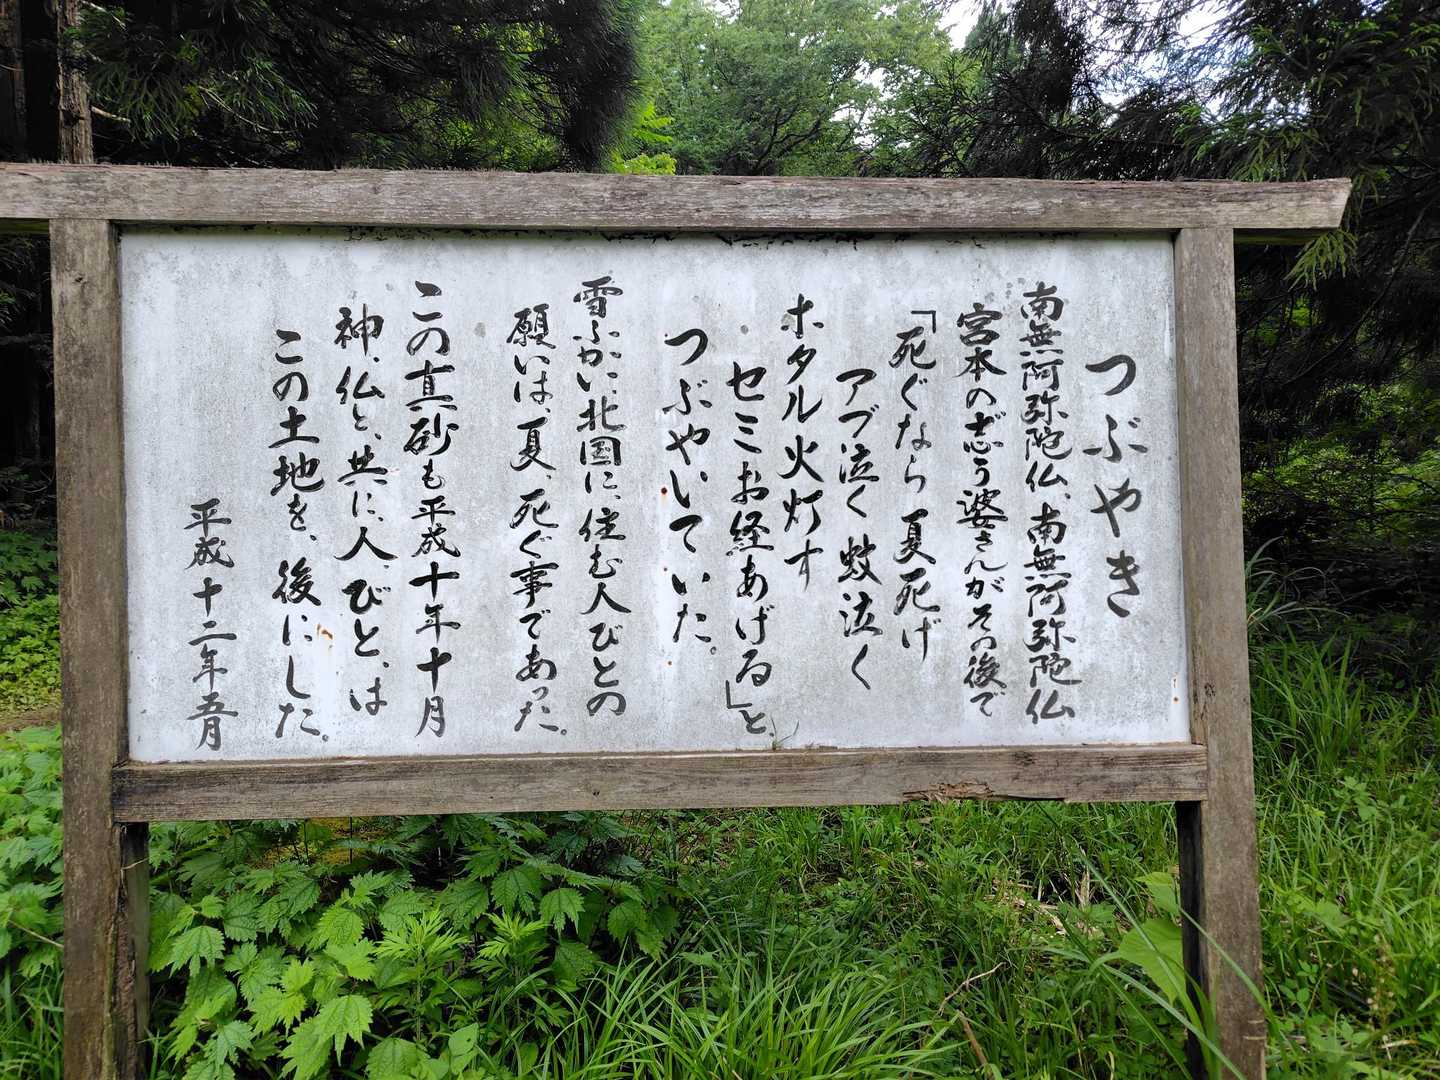 つぶやき
南無阿弥陀仏、南無阿弥陀仏
宮本の志う婆さんがその後で
「死ぐなら夏死げ
アブ泣く蚊泣く
ホタル火灯す
セミお経あげる」と
つぶやいていた。
雪ふかい、北国に、住む人びとの
願いは、夏、死ぐ事であった。
この真砂も平成十年十月
神、仏と、共に、人、びと、は
この土地を、後にした。
平成十二年五月